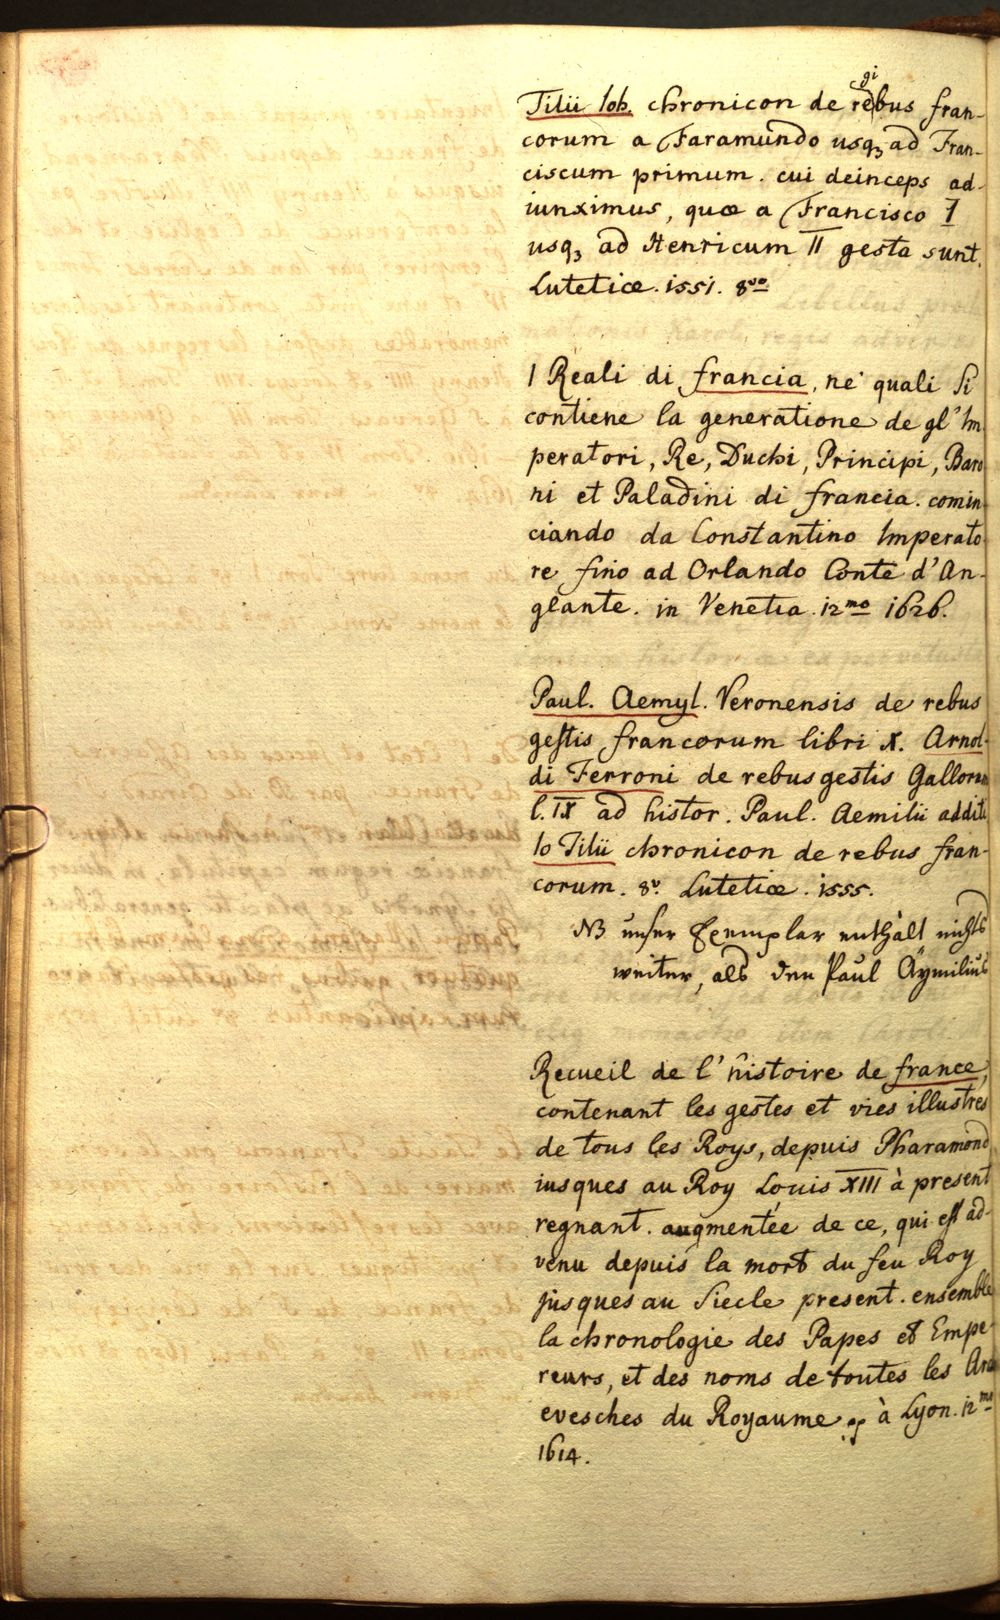 Tilii Ioh. chronicon de regibus fran-
corum a Faramundo usqz ad Fran-
ciscum primum. cui deinceps ad-
iunximus, quae a Francisco I
usqz ad Henricum II gesta sunt.
Lutetiae. 1551. 8vo
I Reali di francia, ne' quali si
contiene la generatione de gl' Im
peratori, Re, Duchi, Principi, Baro
ni et Paladini di francia. comin
ciando da Constantino Imperato
re fino ad Orlando Conte d'An-
glante. in Venetia. 12mo 1626.
Paul. Aemyl. Veronensis de rebus
gestis francorum libri X. Arnol-
di Ferroni de rebus gestis Gallorum
l. IX ad histor. Paul. Aemilii additi
Io Tilii chronicon de rebus fran-
corum. 8v. Lutetiae. 1555.
NB unser Exemplar enthält nichts
weiter, als den Paul Aÿmilius
Recueil de l' histoire de france,
contenant les gestes et vies illustres
de tous les Roys, depuis Pharamond
iusques au Roy Louis XIII à present
regnant. augmentée de ce, qui est ad-
venu depuis la mort du feu Roy
jusques au Siecle present. ensemble
la chronologie des Papes et Empe-
reurs, et des noms de toutes les Arc
evesches du Royaume à Lyon. 12mo
1614.